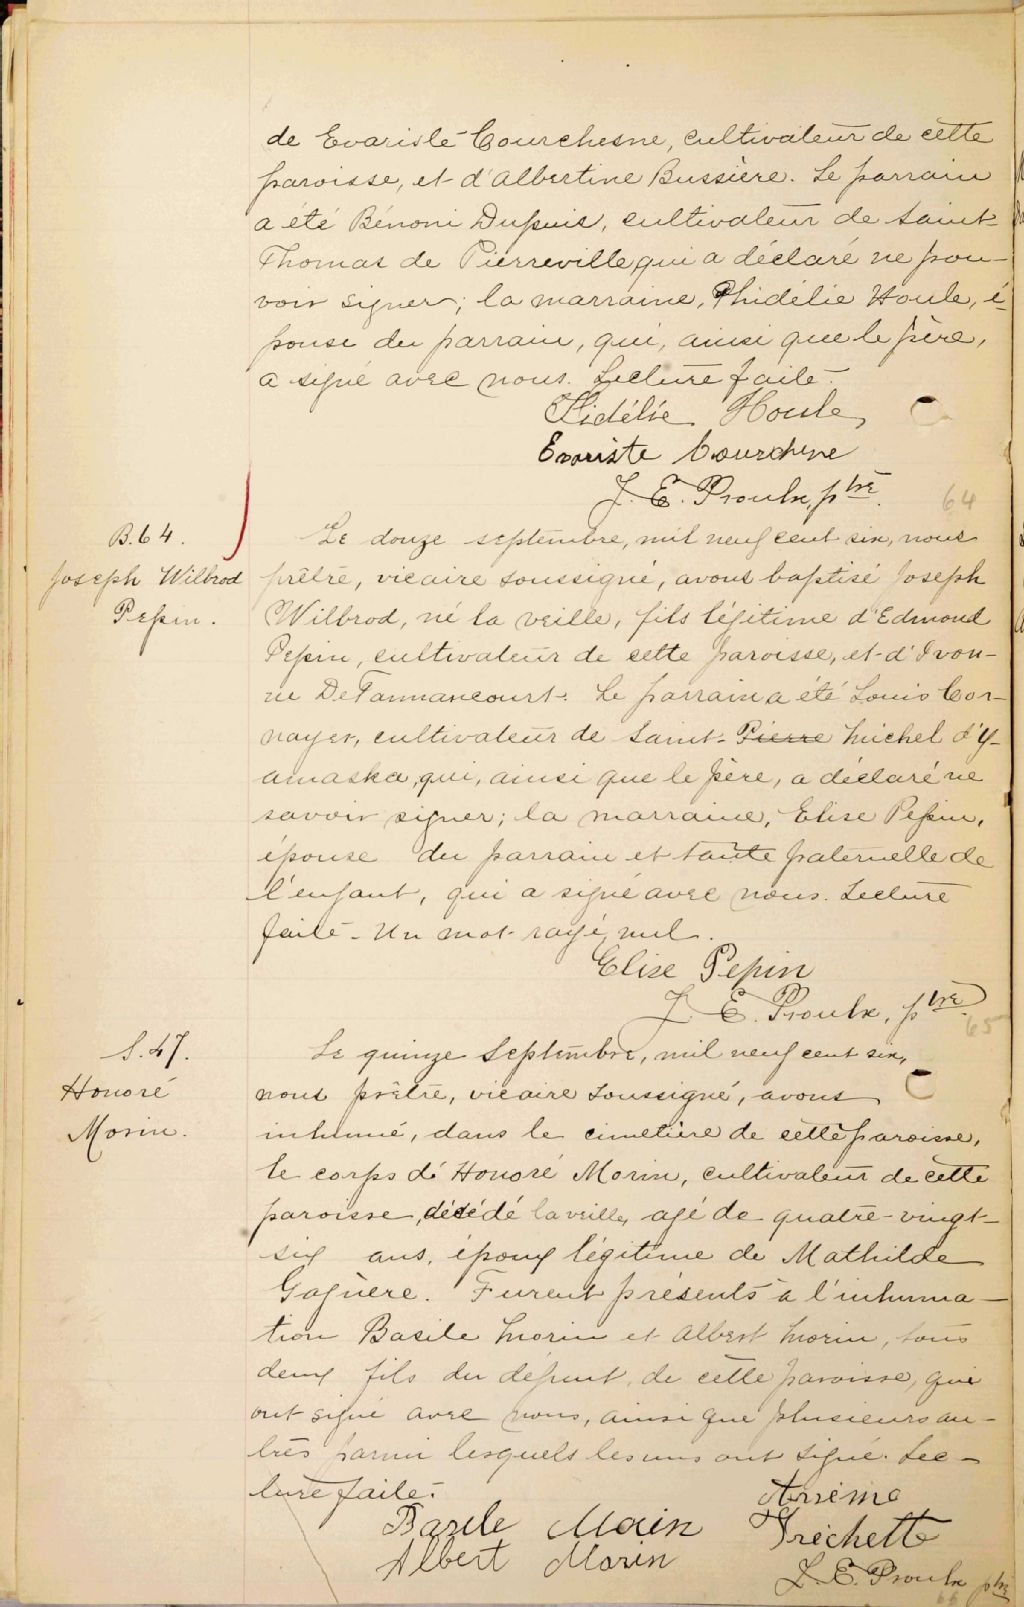 de Evariste Courchesne, cultivateur de cette
paroisse, et d'Albertine Bussière. Le parrain
a été Bénoni Dupuis, cultivateur de Saint-
Thomas de Pierreville, qui a déclaré ne pou-
voir signer; la marraine, Phidélie Houle, é-
pouse du parrain, qui, ainsi que le père,
a signé avec nous. Lecture faite.
Fidélie Houle
Evariste Courchene
J. E. Proulx, ptre.
64
B. 64.
Joseph Wilbrod
Pepin.
Le douze septembre, mil neuf cent six, nous
prêtre, vicaire soussigné, avons baptisé Joseph
Wilbrod, né la veille, fils légitime d'Edmond
Pepin, cultivateur de cette paroisse, et d'Ivon-
ne DeTonnancourt. Le parrain a été Louis Cor-
noyer, cultivateur de Saint-Pierre Michel d'Y-
amaska, qui, ainsi que le père, a déclaré ne
savoir signer; la marraine, Elise Pepin,
épouse du parrain et tante paternelle de
l'enfant, qui a signé avec nous. Lecture
faite. Un mot rayé nul.
Elise Pepin
J. E. Proulx, ptre.
65
S. 47.
Honoré
Morin.
Le quinze Septembre, mil neuf cent six,
nous prêtre, vicaire soussigné, avons
inhumé, dans le cimetière de cette paroisse,
le corps de Honoré Morin, cultivateur de cette
paroisse, décédé la veille, agé de quatre-vingt-
six ans, époux légitime de Mathilde
Gagnère. Furent présents à l'inhuma-
tion Basile Morin et Albert Morin, tous
deux fils du défunt, de cette paroisse, qui
ont signé avec nous, ainsi que plusieurs au-
tres parmi lesquels les uns ont signé. Lec-
ture faite.
Arsème
Basile Morin Fréchette
Albert Morin
J. E. Proulx ptre
66